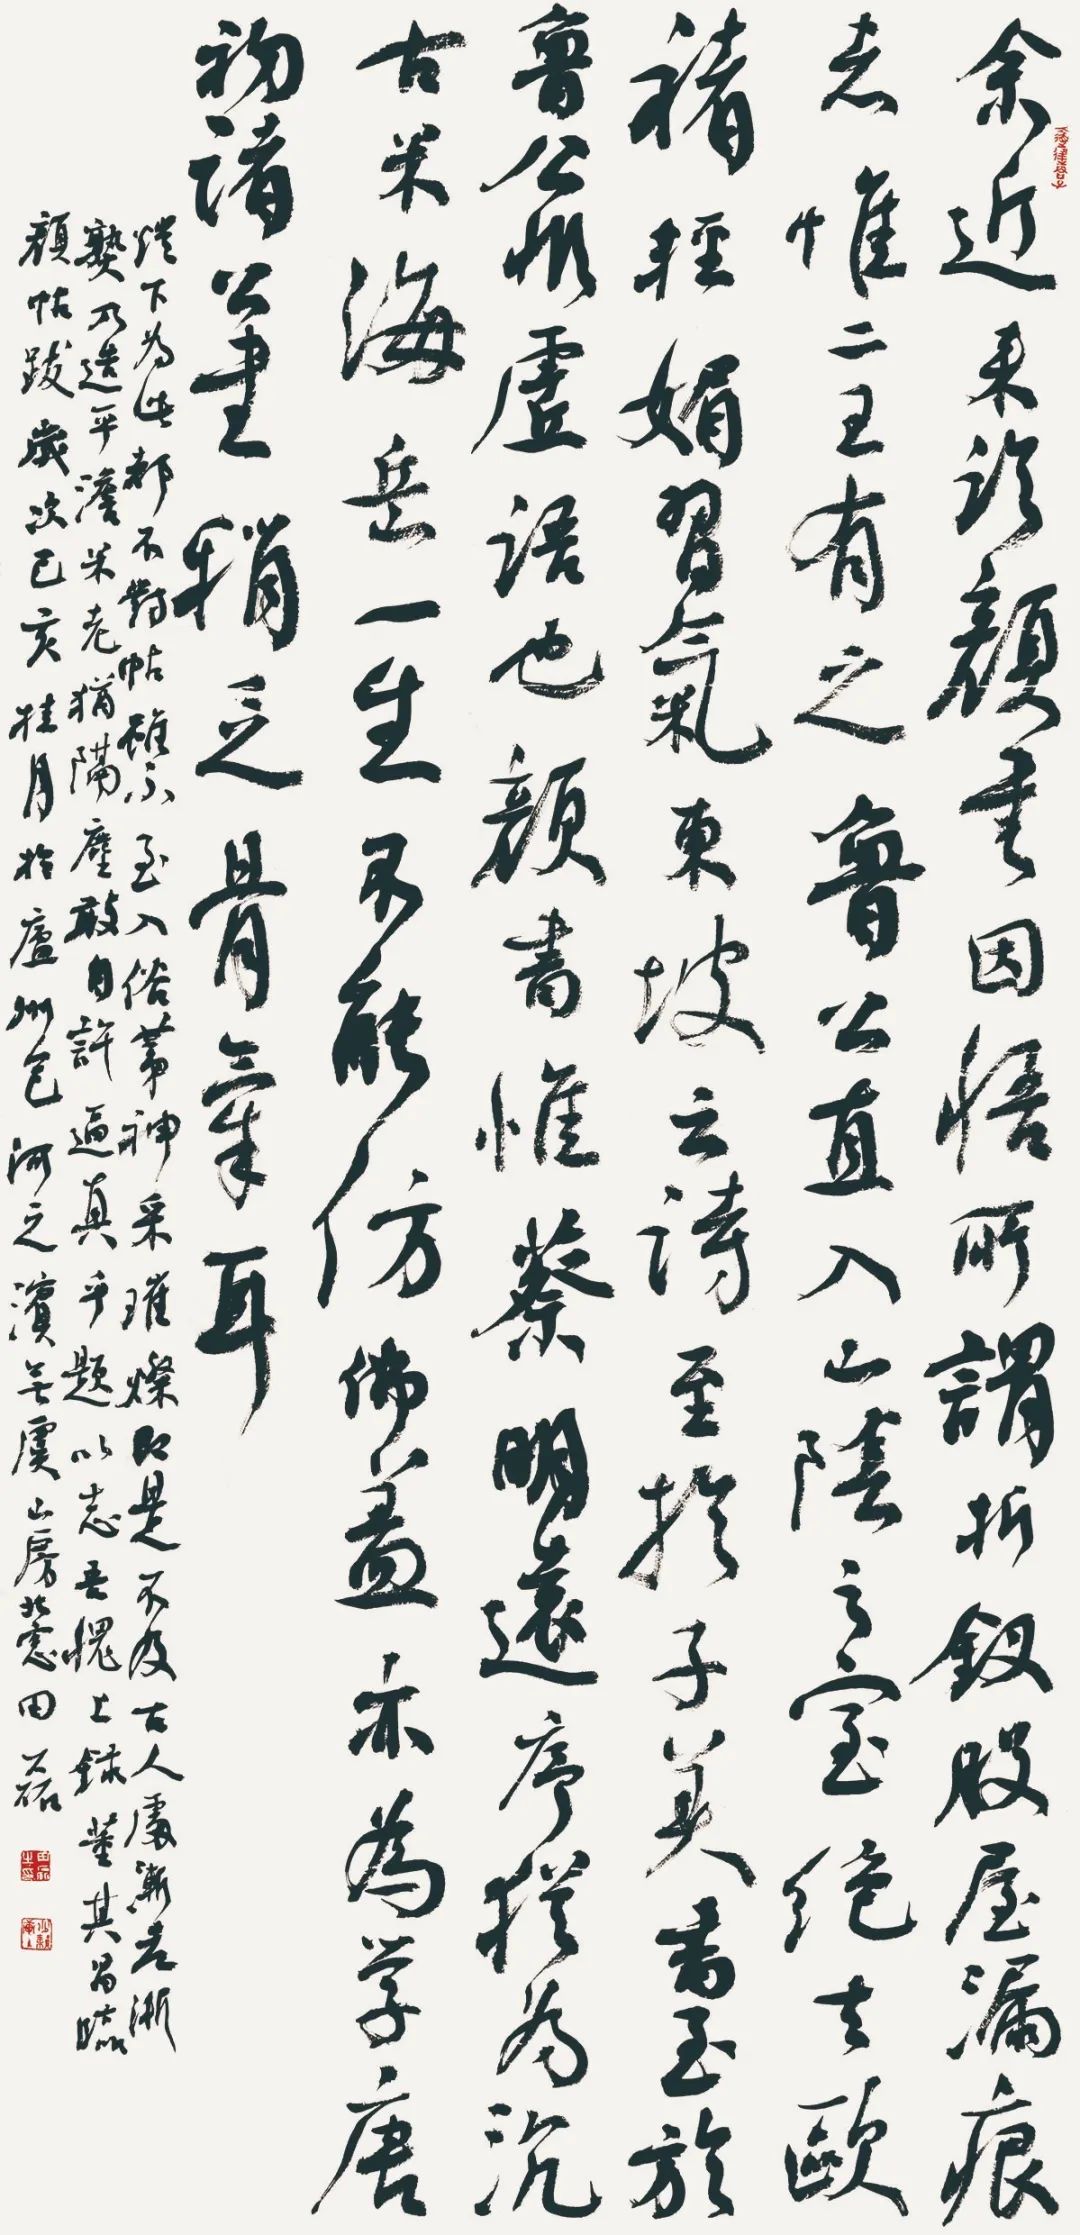 余近来臨顏書因悟所謂折釵股屋漏痕
者惟二王有之魯公直入山陰之室絕去歐
褚輕媚習氣東坡云詩至於子美書至於
魯公非虛語也顏書惟蔡明遠序猶為沉
古米海岳一生不能仿佛蓋亦為學唐
初諸公書稍乏骨氣耳
燈下為此都不對帖雖不至入俗第神采璀燦即是不及古人處漸老漸
熟乃造平澹米老猶隔塵敢自許逼真乎題以志吾愧上錄董其昌臨
顏帖跋歲次己亥桂月於廬州包河之濱無虞山房北窗田磊